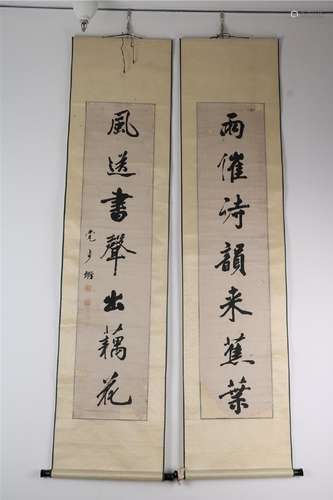 雨催诗韻来蕉葉
風送書聲出藕花